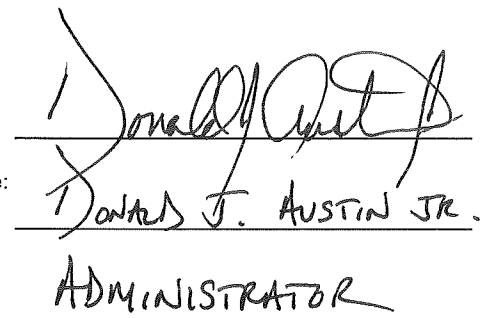 Donald J Austin Jr
DONALD J. AUSTIN JR.
ADMINISTRATOR